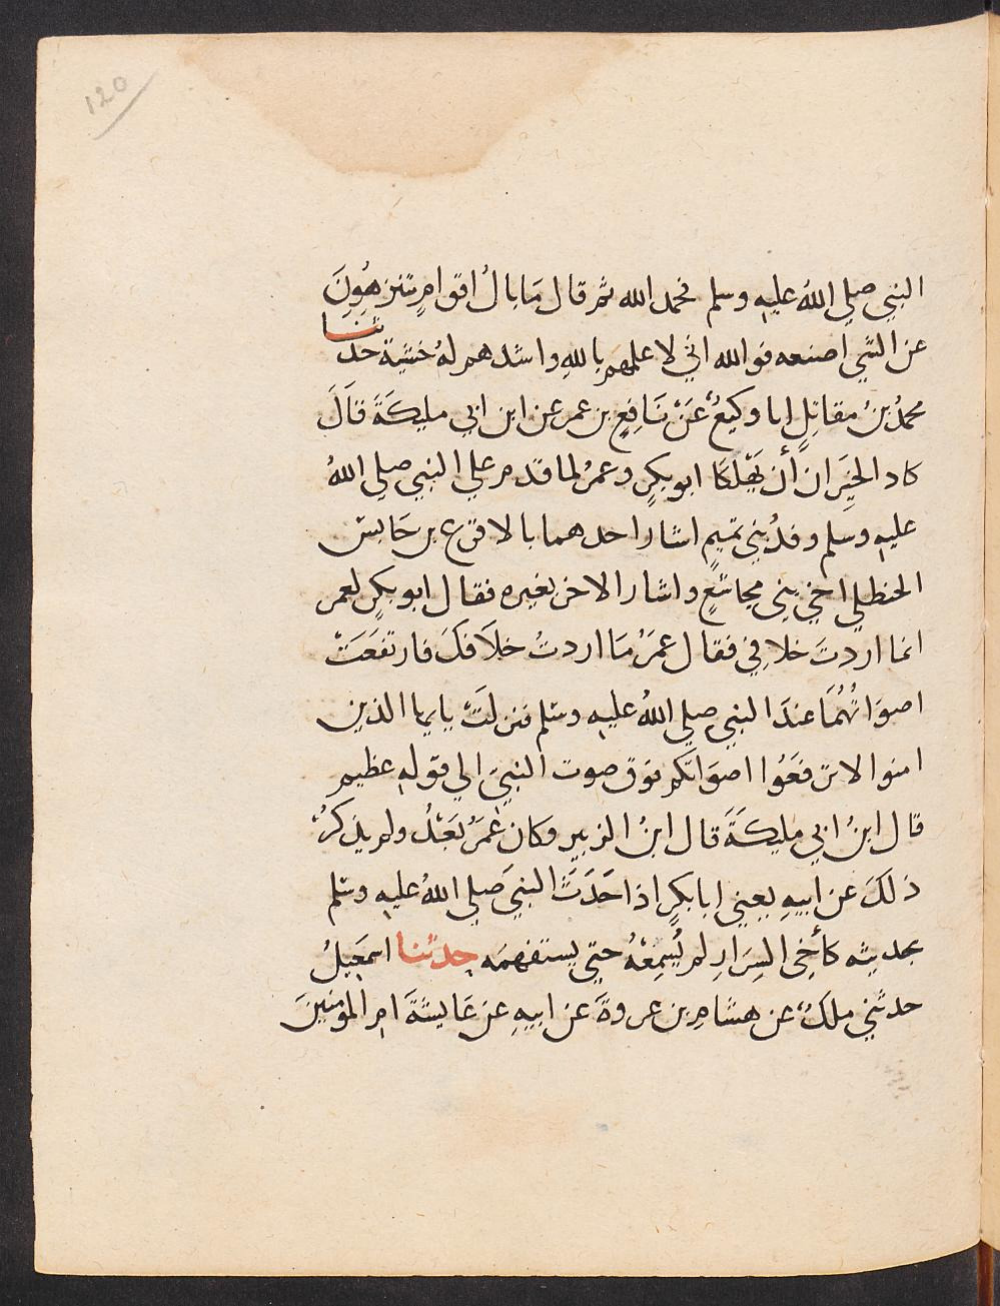 120
النبي صلي اللهُ عليهِ وسلم فحمد الله ثم قال مَا بالُ اقوامٍ تتنزهُونَ
عن الشي اصنعه فوالله اني لاعلمهم باللهِ واشدهم لهُ خشية حدثنا
محمدُ بنُ مقاتلٍ ابا وكيعٌ عَنْ نَافِعِ بن عمر عن ابن ابي مليكةَ قالَ
كاد الخيِّرانِ أن يَهْلكَا ابو بكرٍ وعمرُ لما قدم علي النبي صلي اللهُ
عليهِ وسلم وفدُ بني تميمٍ اشار احدهما بالاقرع بن حَابس
الحنظلي اخي بني مجاشعٍ واشار الاخر بغيره فقال ابو بكرٍ لعمر
انما اردتَ خلافِي فقال عمرُ مَا اردتُ خلافكَ فارتفعَتْ
اصوَاتُهُمَا عندَ النبي صلي اللهُ عليهِ وسلم فنزلتْ يايها الذين
امنوا لا ترفعَوُا اصوَاتكم فوق صوت النبيِ الي قوله عظيم
قال ابنُ ابي مليكةَ قال ابنُ الزبير وكان عمرُ بَعْدُ ولم يذكرْ
ذلكَ عن ابيهِ يعني ابا بكرٍ اذا حَدَثَ النبيَ صلي اللهُ عليهِ وسلم
بحديثه كأخِى السِرَارِ لم يُسْمِعْهُ حتي يستفهمَه حدثنا اسمعيلُ
حدثني ملكٌ عن هشام بن عروةَ عن ابيهِ عن عَايشةَ ام المؤمنينَ